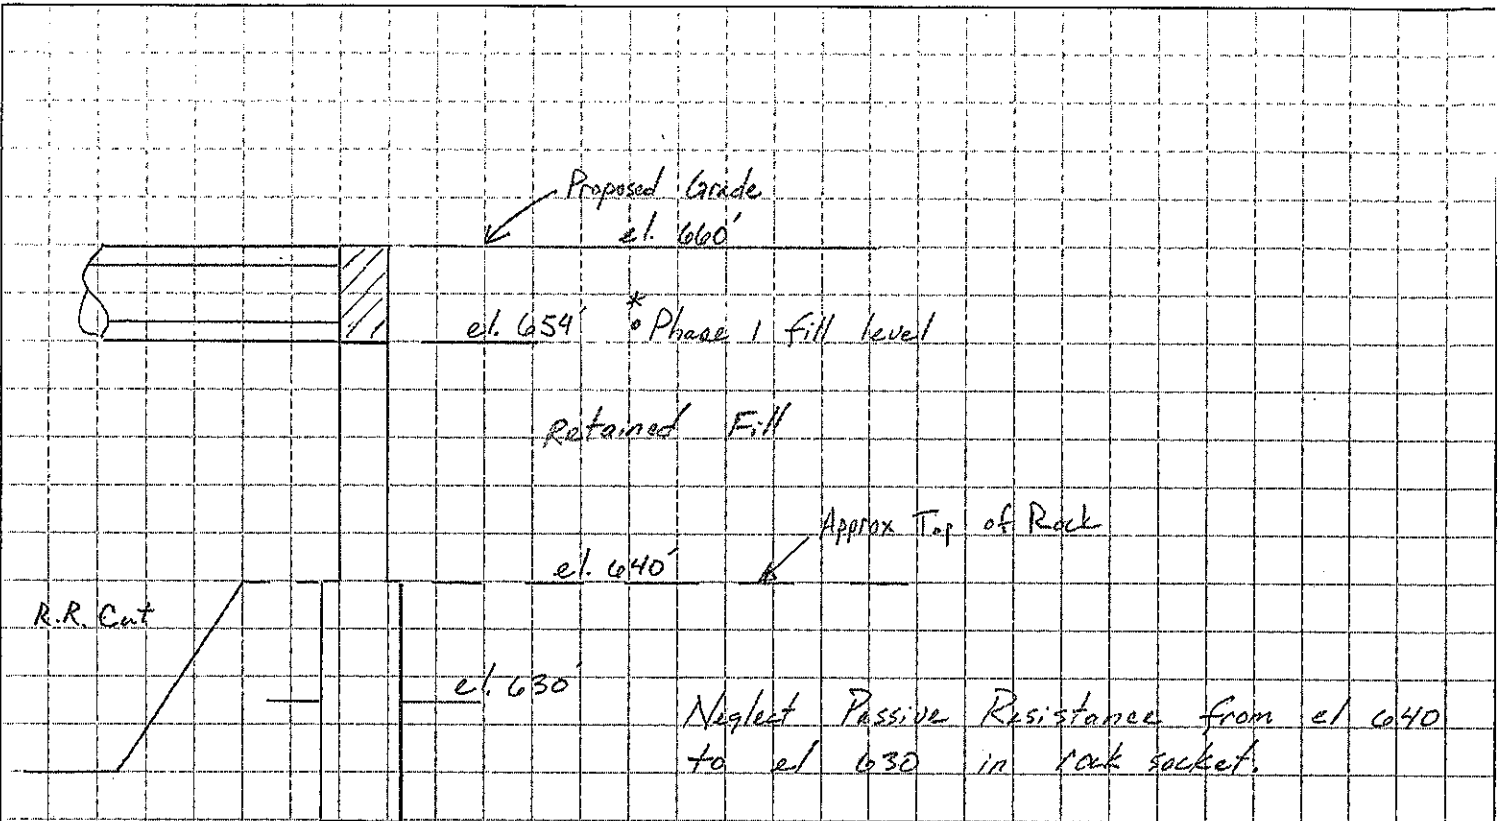 Proposed Grade
el. 660'
el. 654' * Phase 1 fill level
Retained Fill
Approx Top of Rock
el. 640'
R.R. Cut
el. 630'
Neglect Passive Resistance from el 640
to el 630 in rock socket.